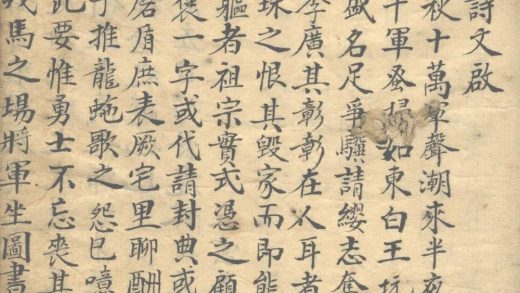 詩文啟
秋十萬軍聲潮來半夜
千軍如東白王坑
盛名足爭驥請纓志奪
李廣其彰彰在人耳者
珠之恨其毀家而即能
軀者祖宗實式憑之顧
褒一字或代請封典或
庶表厥宅里聊酬
子推龍虵歌之怨已噫
此要惟勇士不忘喪其
戎馬之場將軍坐圖書